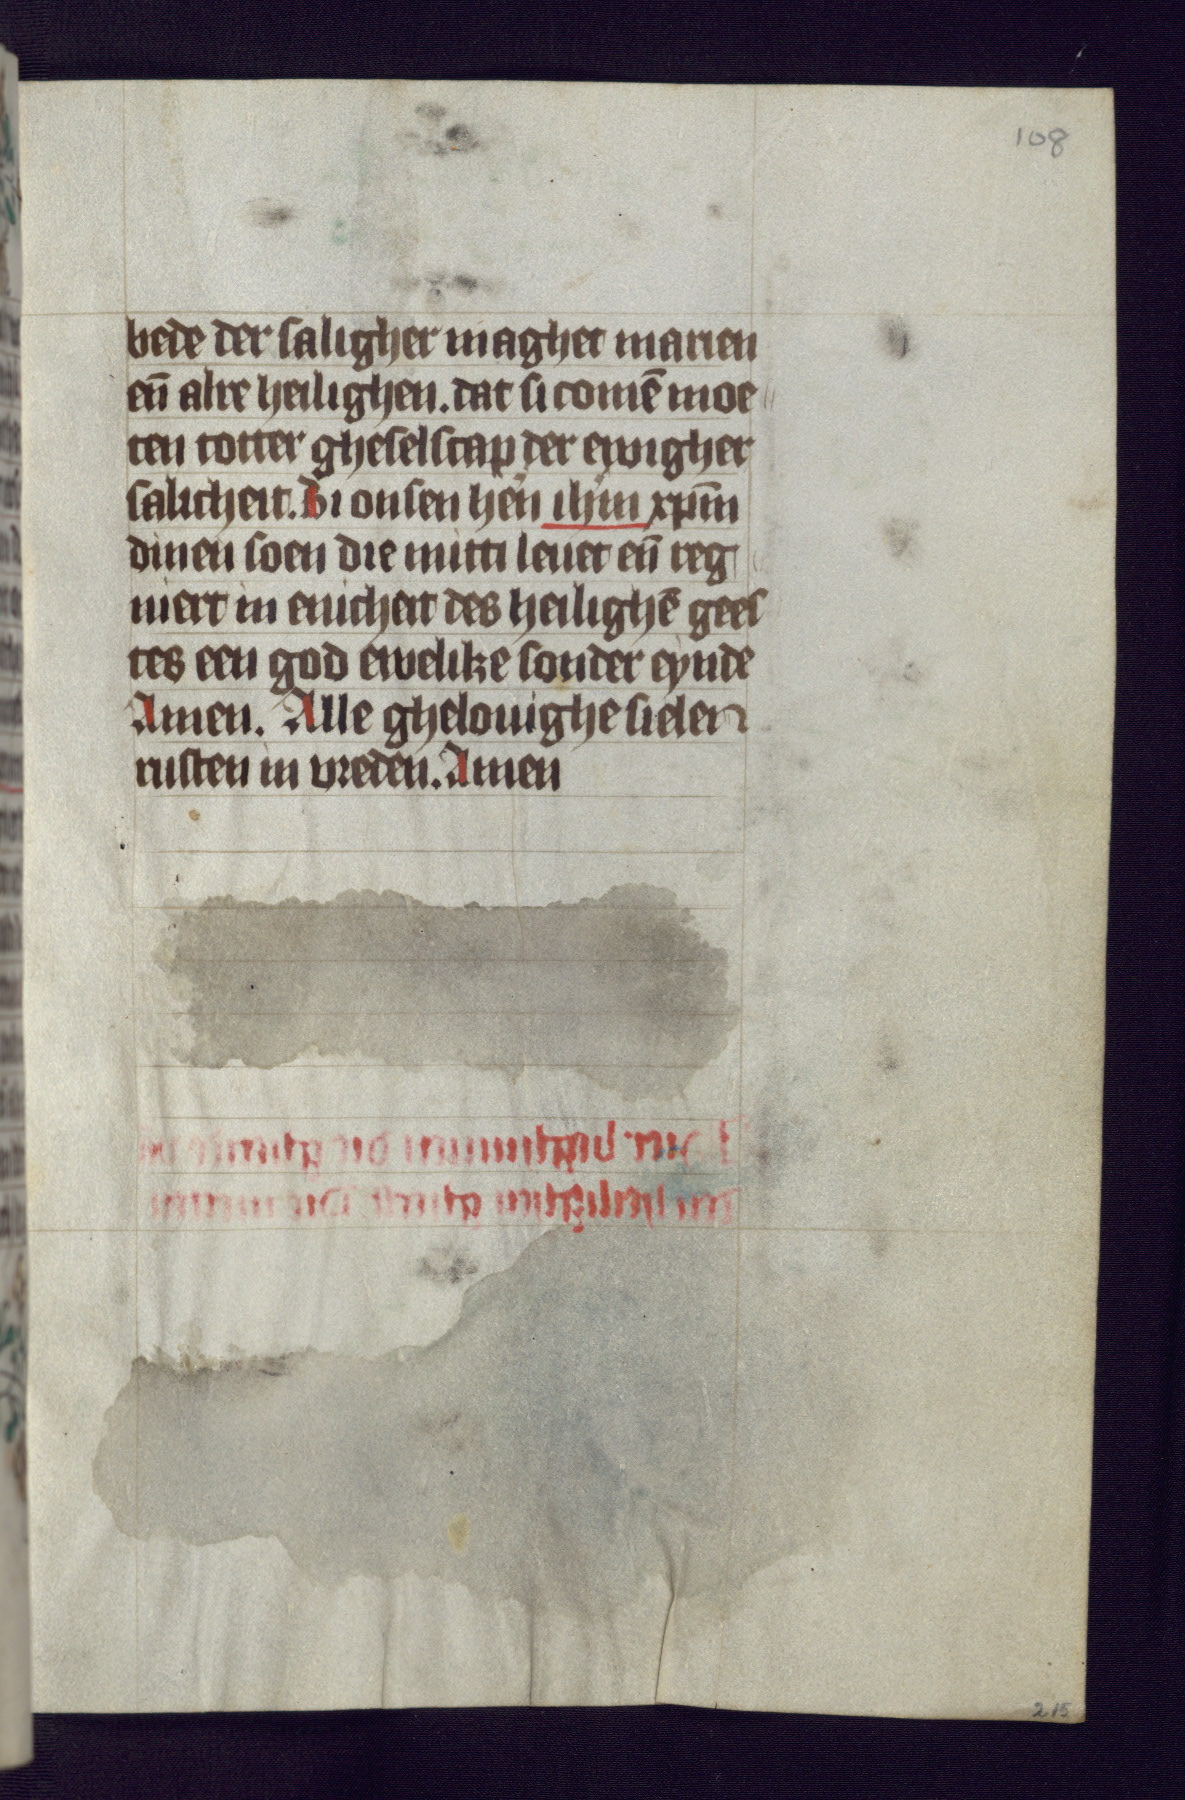 108
bede der saligher maghet marien
eñ alre heilighen. dat si comē moe
ten totter gheselscap der ewigher
salicheit. Bi onsen hēn ihm xpm̄
dinen soen die mitti leuet eñ reg
niert in enicheit des heilighē gees
tes een god ewelike sonder eynde
Amen. Alle ghelouighe sielen
rusten in vreden. Amen
215